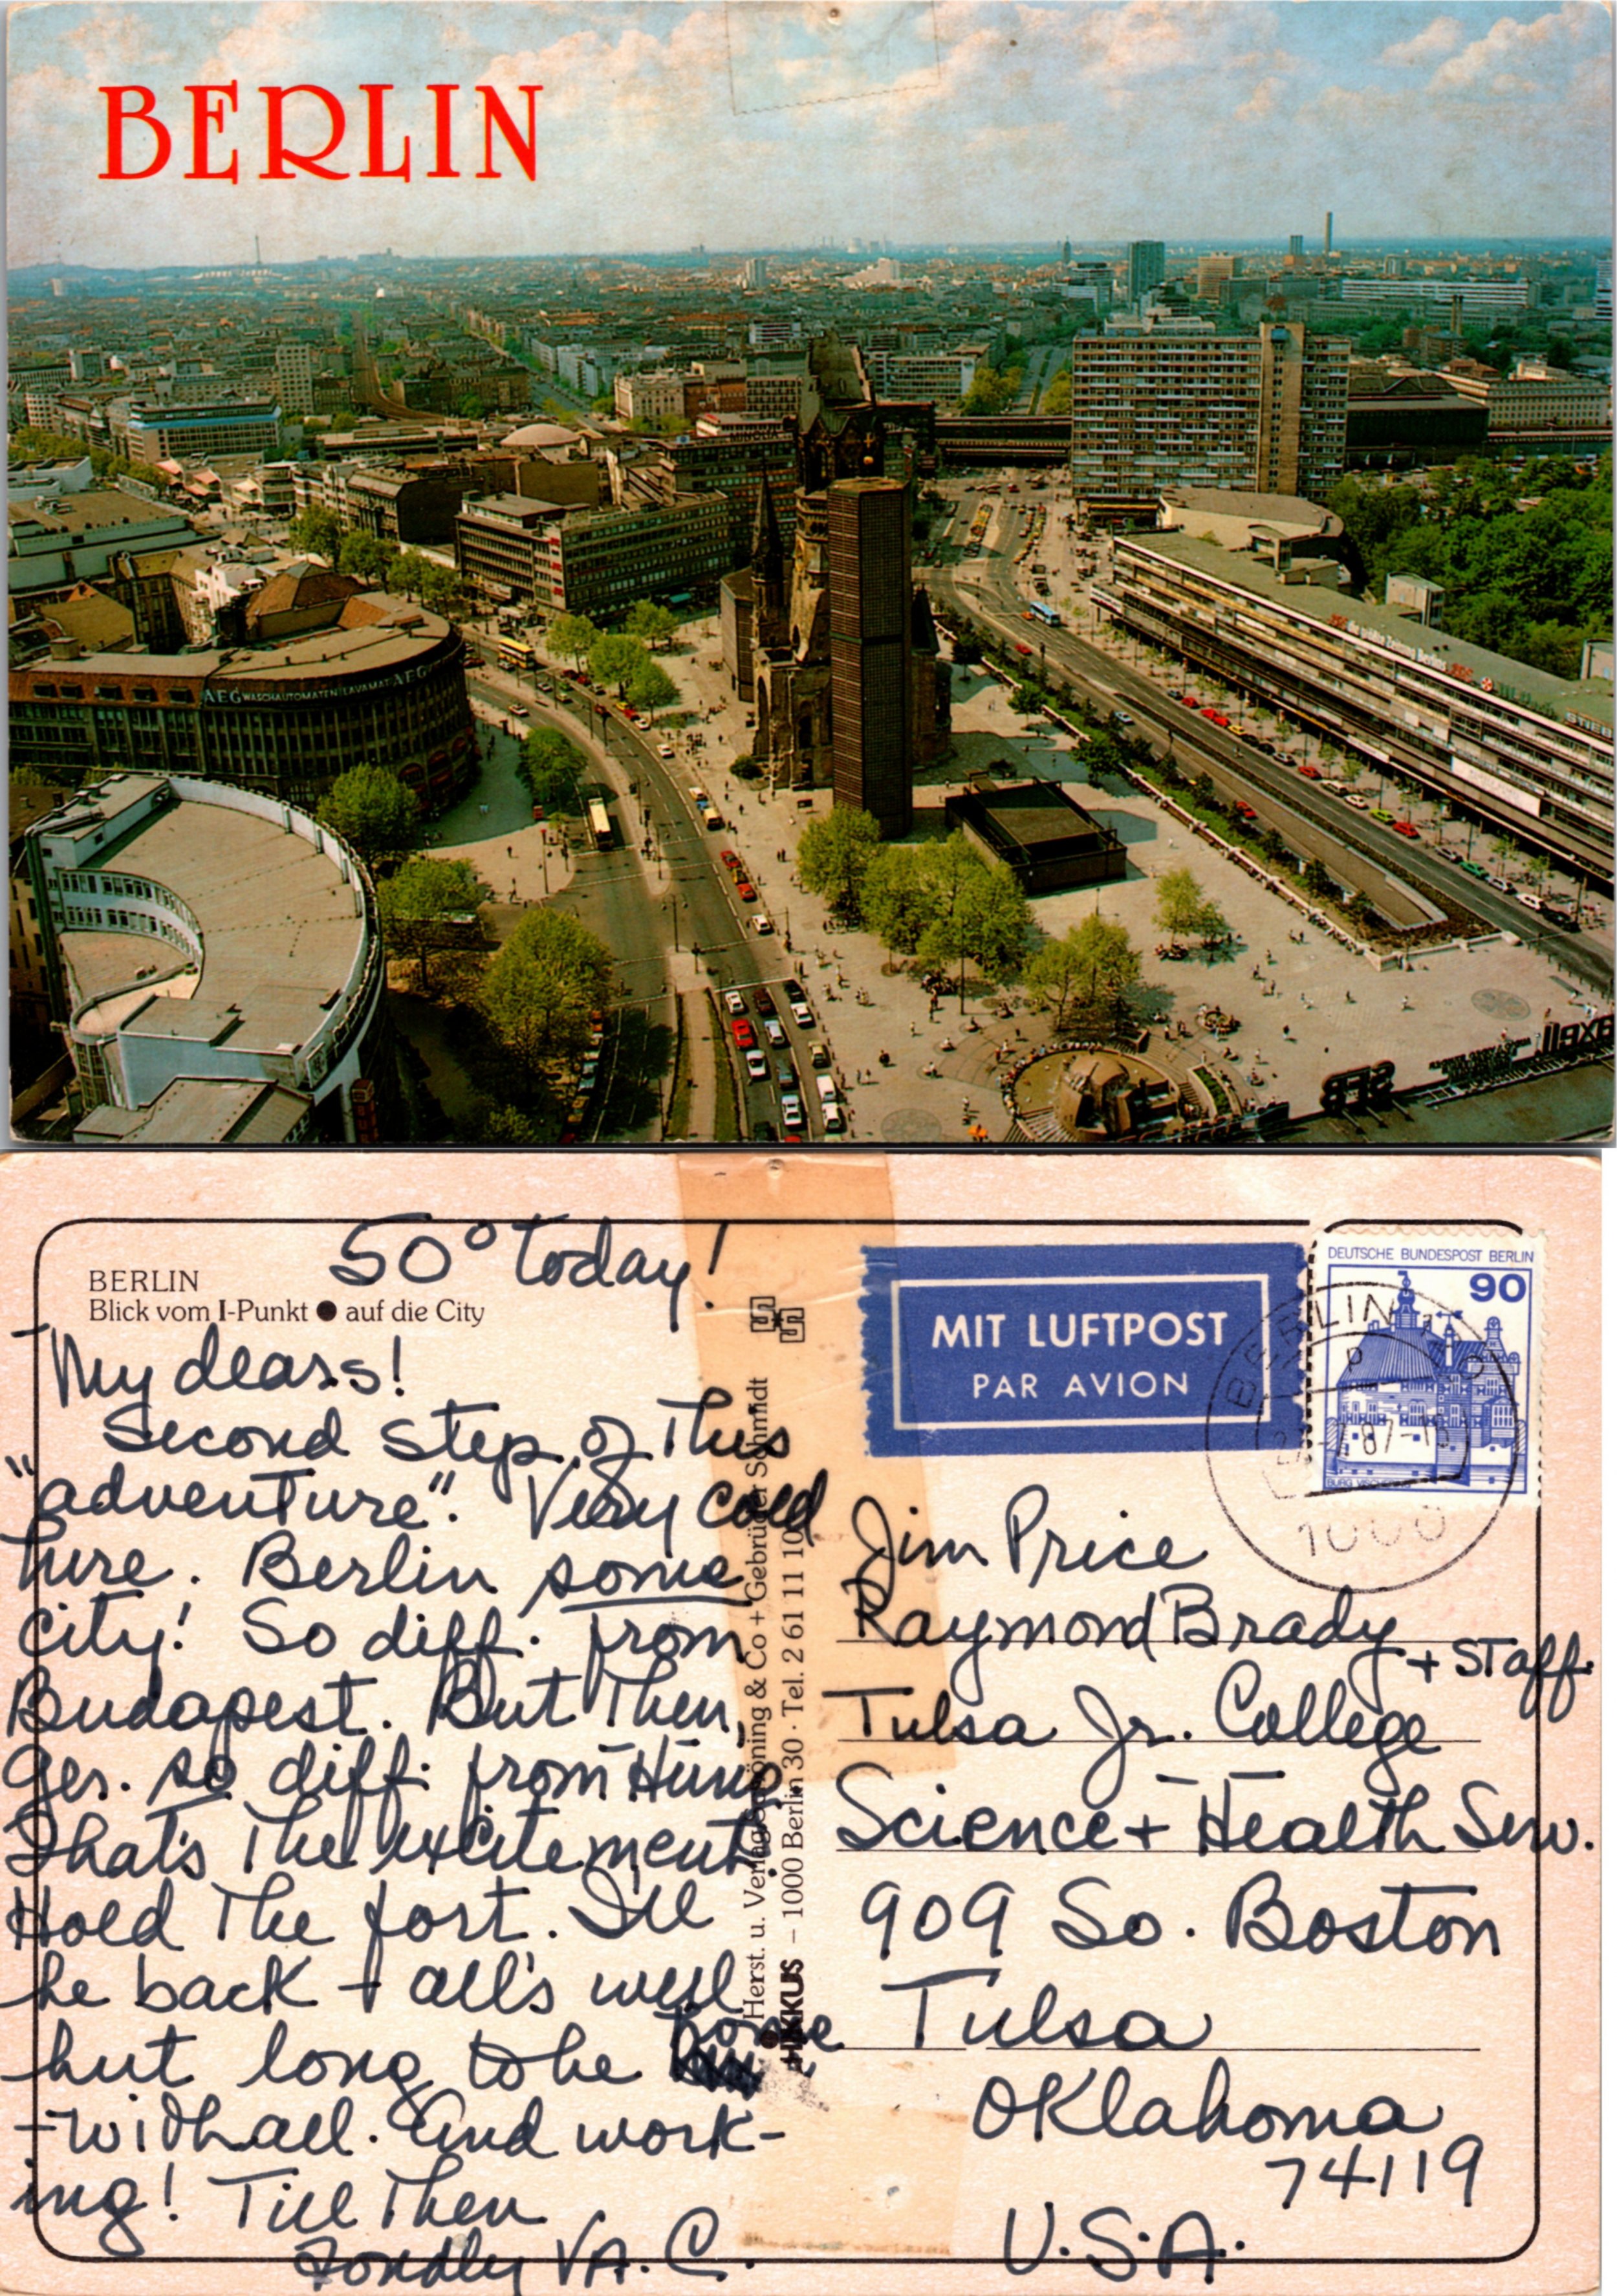 BERLIN
AEG WASCHAUTOMATEN LAVAMAT AEG
BZ die größte Zeitung Berlins BZ
SFB
50° today!
BERLIN
Blick vom I-Punkt ● auf die City
My dears!
Second step of this
"adventure". Very cold
here. Berlin some
city! So diff. from
Budapest. But then,
Ger. so diff. from Hung.
That's the excitement.
Hold the fort. I'll
be back + all's well
but long to be home
- with all. And work-
ing! Till then
Fondly VA. C.
Herst. u. Verlag Schöning & Co + Gebrüder Schmidt
– 1000 Berlin 30 · Tel. 2 61 11 10
MIT LUFTPOST
PAR AVION
DEUTSCHE BUNDESPOST BERLIN
90
BERLIN
87
1000
Jim Price
Raymond Brady + Staff
Tulsa Jr. College
Science + Health Serv.
909 So. Boston
Tulsa
Oklahoma
74119
U.S.A.